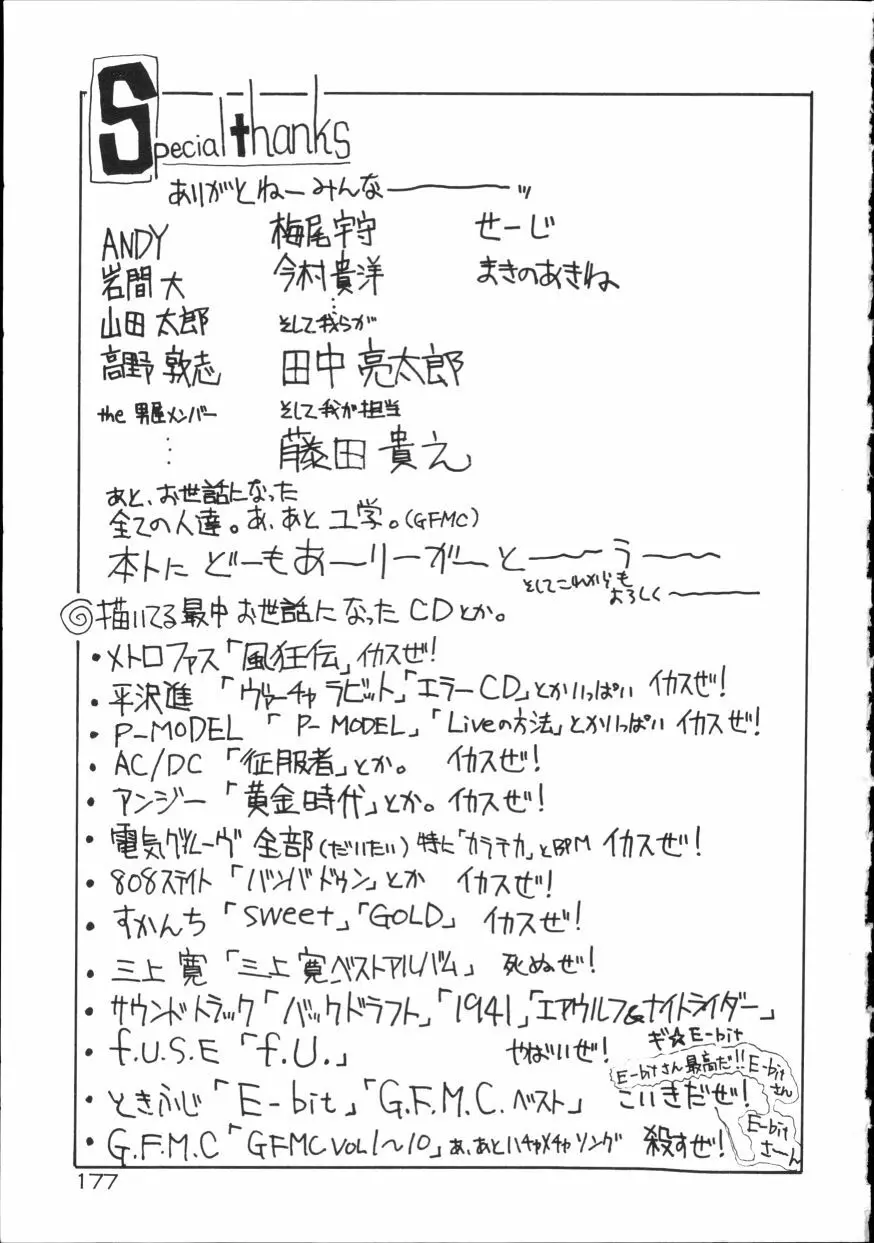 Special thanks
ありがとねーみんなーーーッ
ANDY
岩間 大
山田 太郎
高野 敦志
the 男屋メンバー
⋮
梅尾宇守
今村貴洋
⋮
そして我らが
田中 亮太郎
そして我が担当
藤田 貴え
せーじ
まきのあきね
あと、お世話になった
全ての人達。あ、あと ユ学。(GFMC)
本トに どーもあーりーがーとーーうーー
そしてこれからも
よろしく〜
◎描いてる最中お世話になったCDとか。
・メトロファス「風狂伝」イカスぜ!
・平沢進 「ヴァーチャラビット」「エラーCD」とかいっぱい イカスぜ!
・P-MODEL 「P-MODEL」「Liveの方法」とかいっぱい イカスぜ!
・AC/DC 「征服者」とか。 イカスぜ!
・アンジー 「黄金時代」とか。イカスぜ!
・電気グルーヴ 全部(だいたい)特に「カラテカ」とBPM イカスぜ!
・808ステイト 「バンバドゥン」とか イカスぜ!
・すかんち 「Sweet」「GOLD」 イカスぜ!
・三上 寛 「三上 寛ベストアルバム」 死ぬぜ!
・サウンドトラック「バックドラフト」「1941」「エアウルフ&ナイトライダー」
・f.U.S.E 「f.U.」 やばいぜ!
ギ☆E-bit
E-bitさん最高だ!!
E-bit
さん
・ときふじ 「E-bit」「G.F.M.C.ベスト」 こいきだぜ!
E-bit
さーん
・G.F.M.C「GFMC VOL1〜10」あ、あとハチャメチャソング 殺すぜ!
177